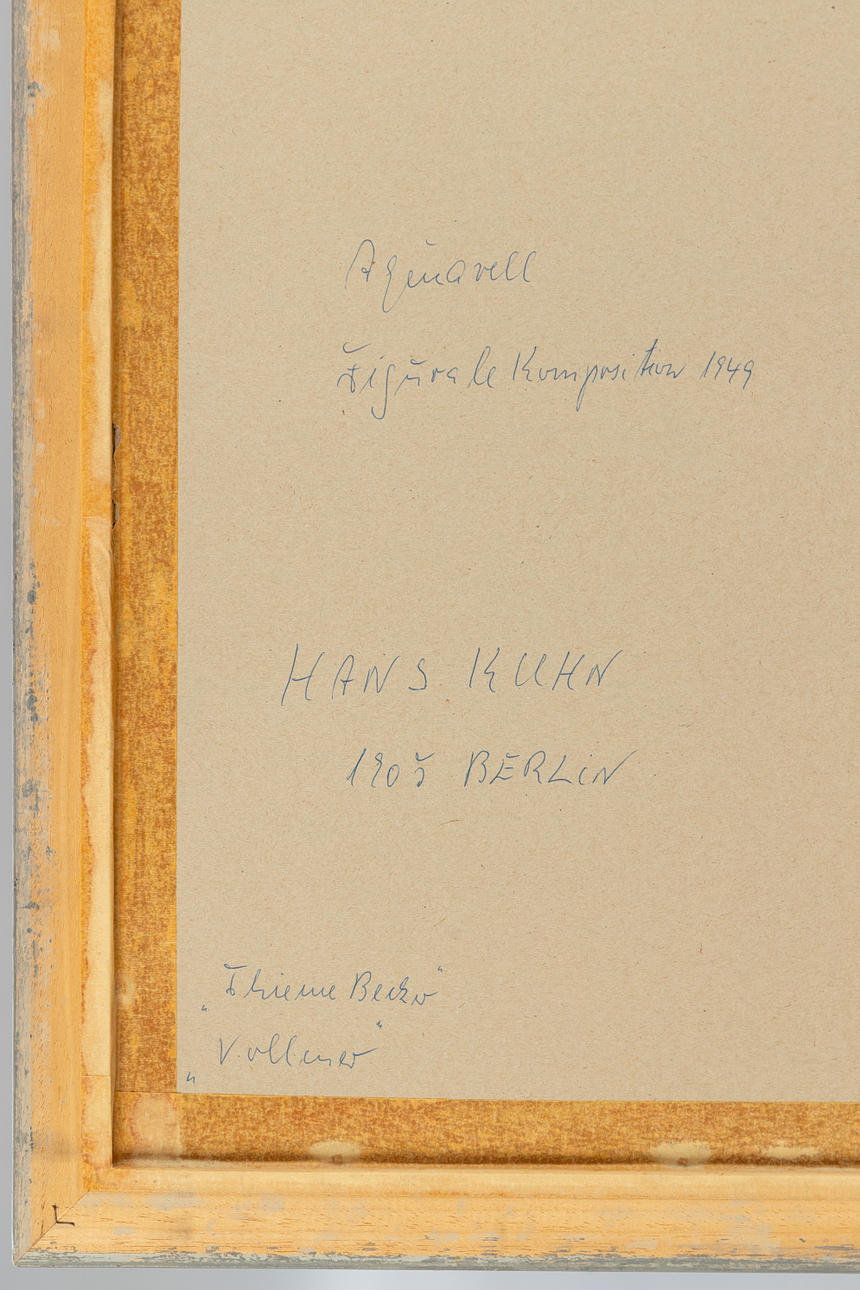 Aquarell
Figurale Komposition 1949
HANS KUHN
1905 BERLIN
„Thieme Becker"
„Vollmer"
L